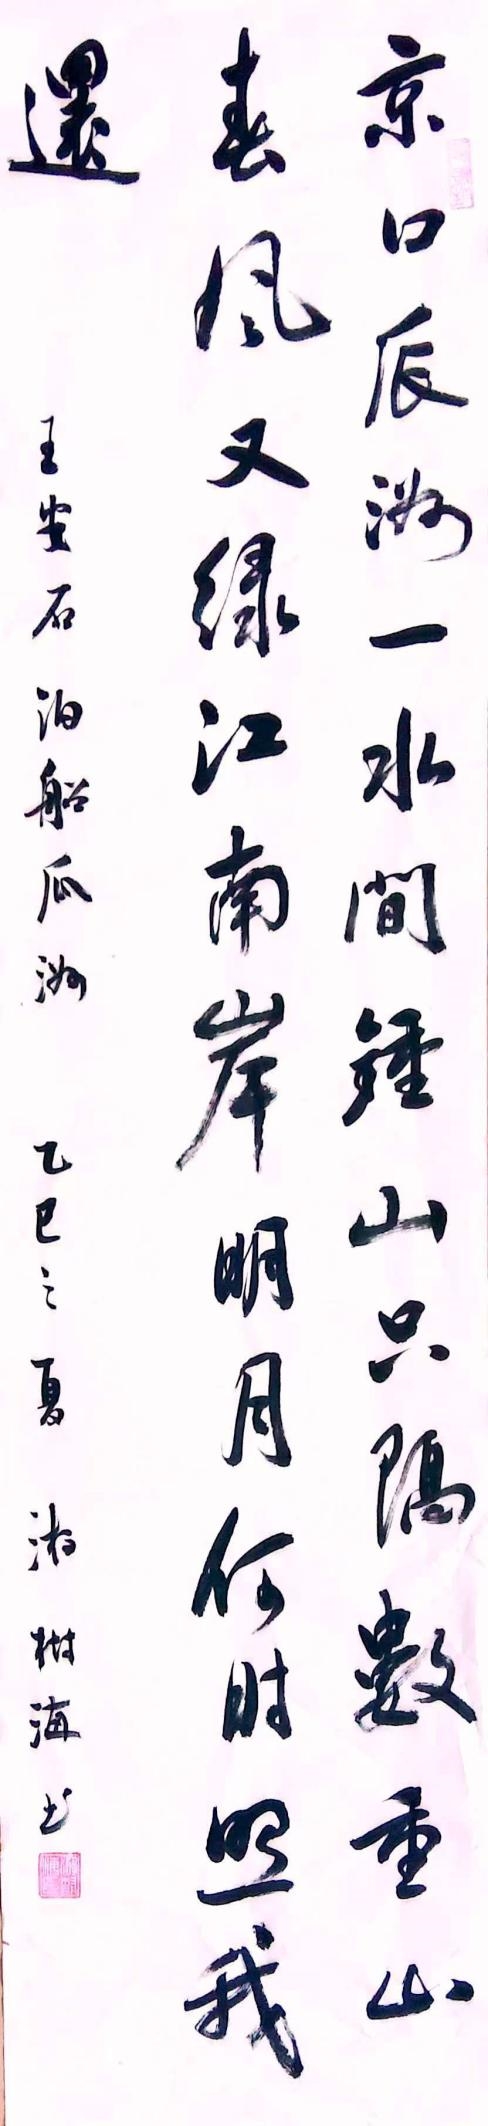 京口瓜洲一水間鍾山只隔數重山
春风又绿江南岸明月何时照我
還 王安石泊船瓜洲 乙巳之夏 湘 树海书